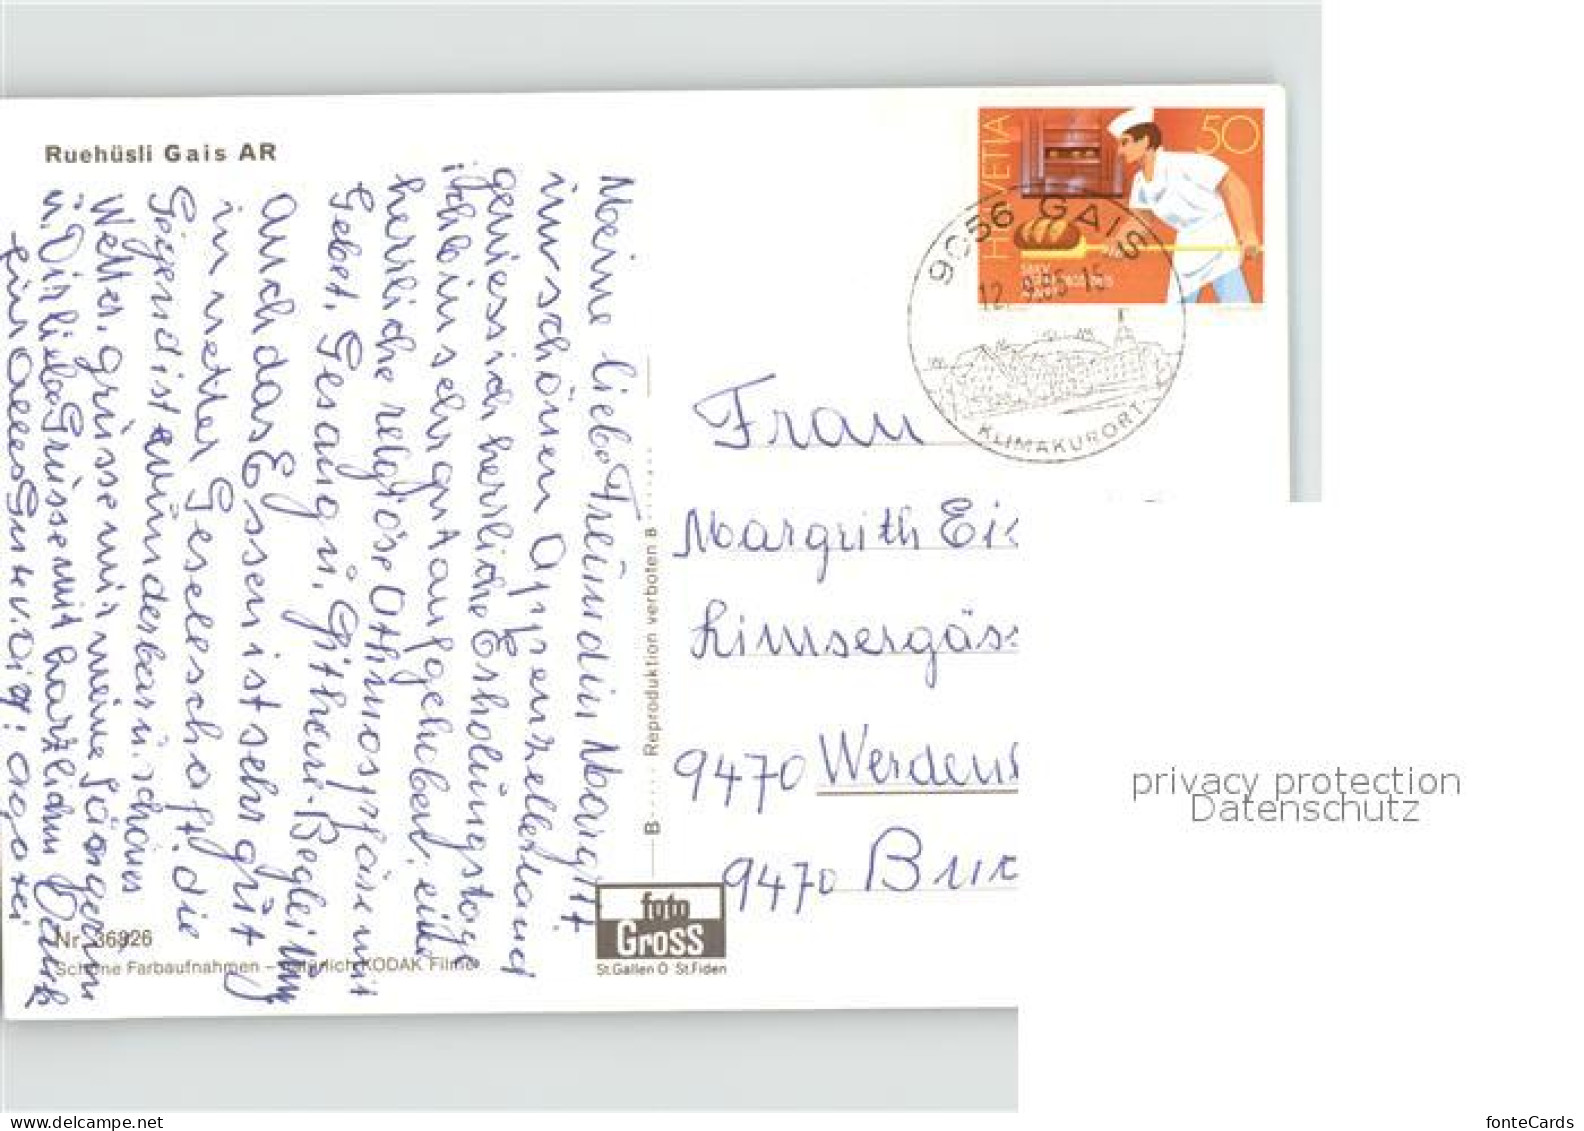 Ruehüsli Gais AR
HELVETIA
50
9056 GAIS
12. 9.85-15
KLIMAKURORT
Meine liebe Freundin Margrit.
im schönen Appenzellerland
geniess ich herrliche Erholungstage
ich bin sehr gut aufgehoben, eine
herrliche religiöse Athmosphäre mit
Gebet, Gesang u. Githare-Begleitung
auch das Essen ist sehr gut
in netter Geselschaft. die
Gegend ist wunderbar u. schönes
Wetter. grüsse mir meine
u. Dir liebe Grüsse mit herzlichem Dank
für alles Gute v. Dir:
Frau
Margrith Eis
Limsergäss
9470 Werdenb
9470 Buc
B···· Reproduktion verboten B
foto
Gross
St.Gallen O St.Fiden
Nr. 36926
Schöne Farbaufnahmen – natürlich KODAK Filme
privacy protection
Datenschutz
fonteCards